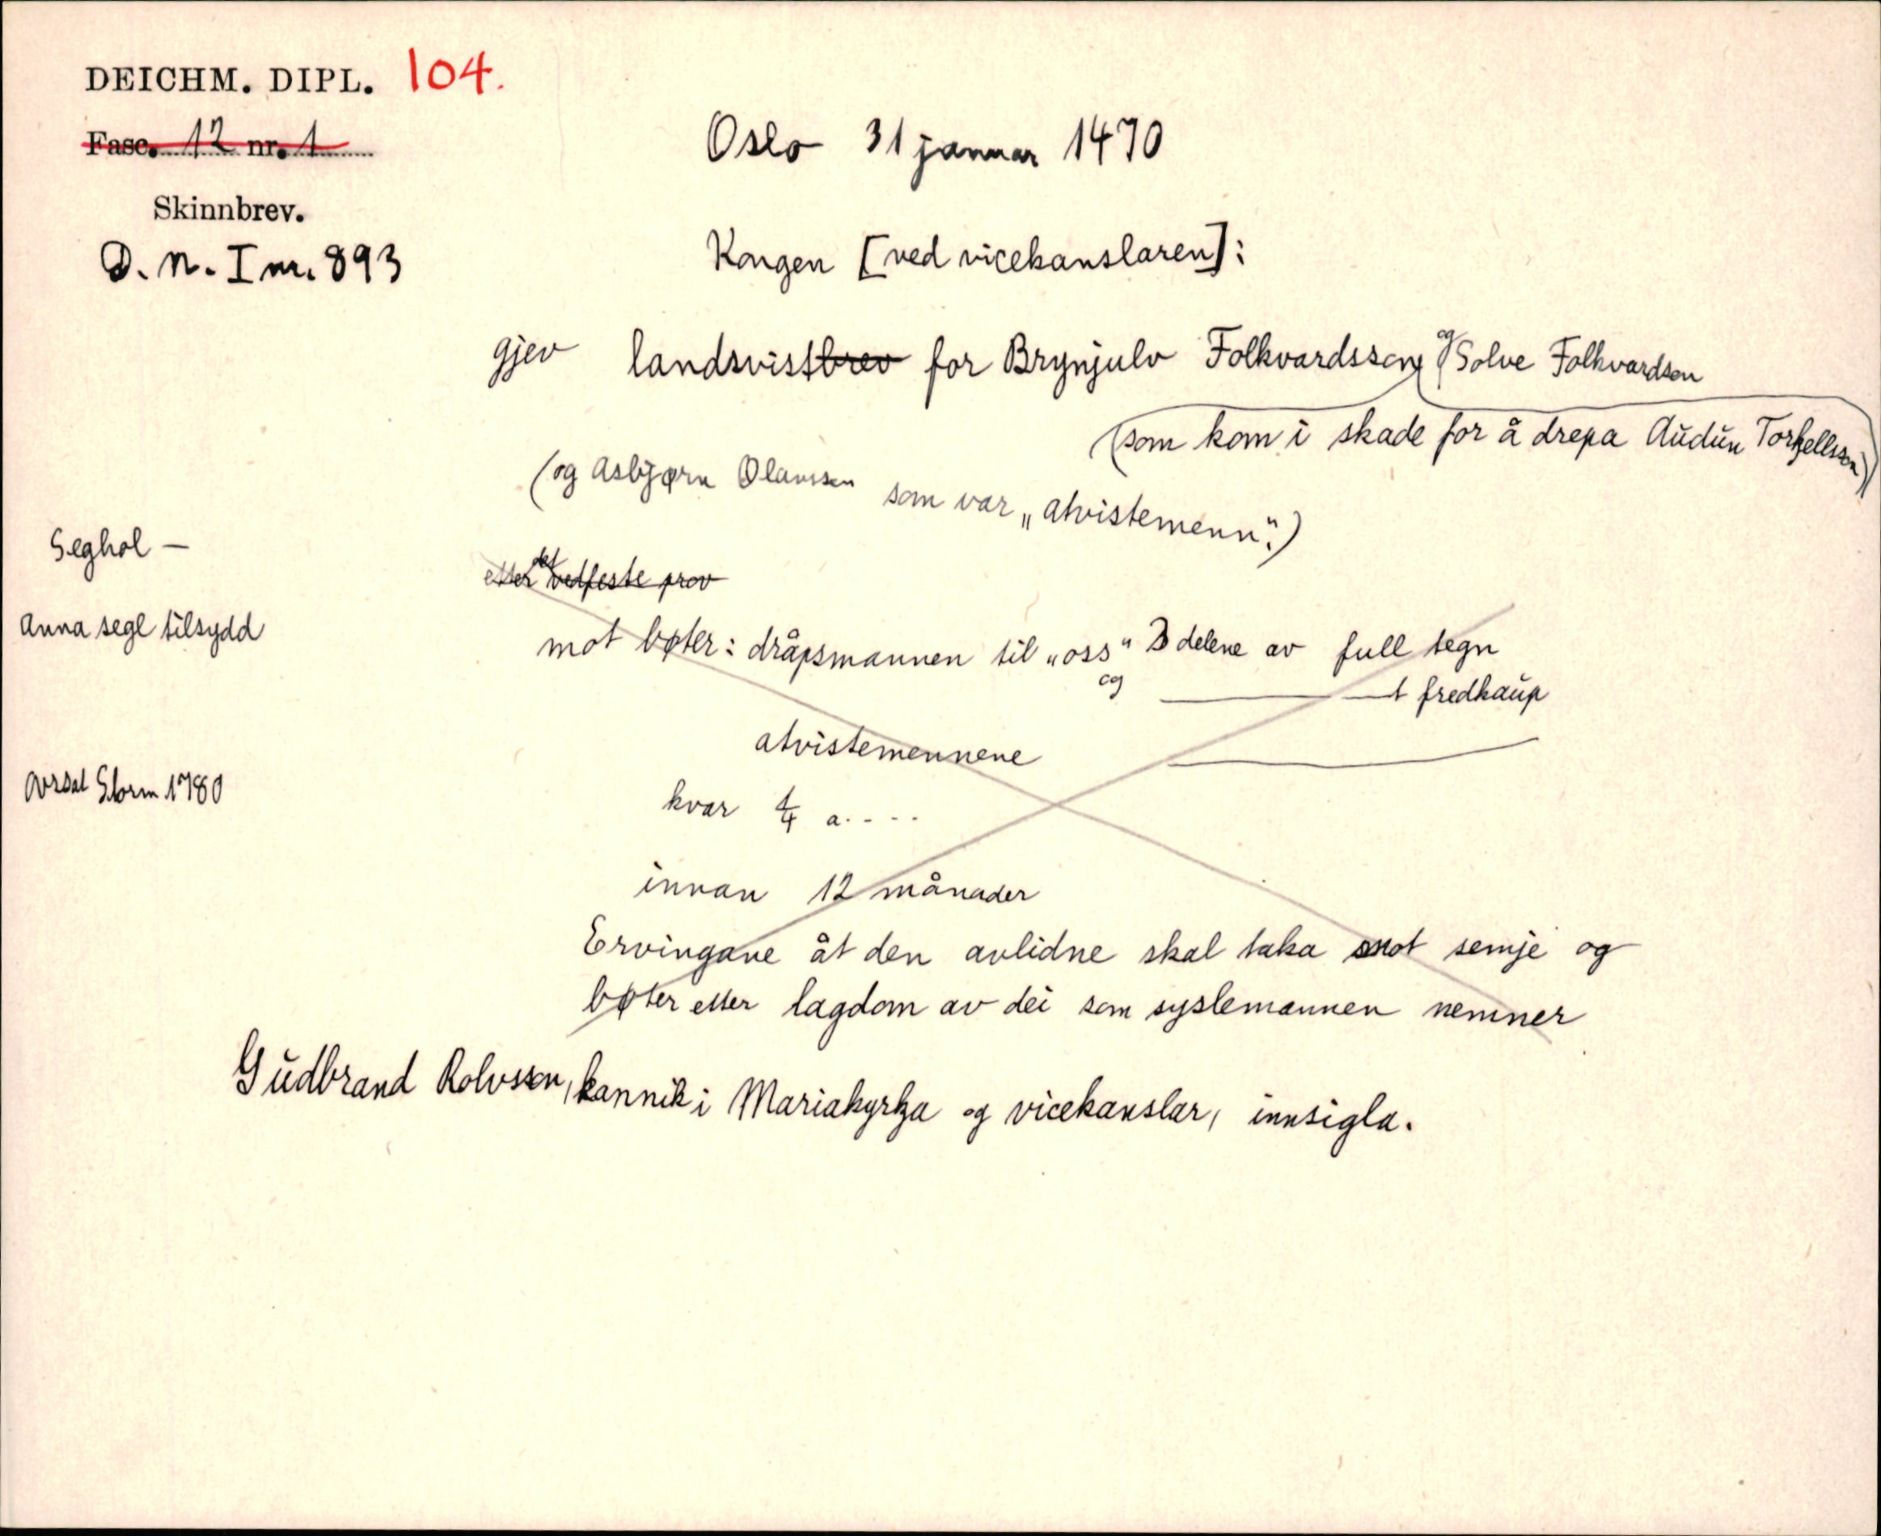 DEICHM. DIPL. 104.
Fasc. 12 nr. 1
Skinnbrev.
D. N. I nr. 893
Oslo 31 januar 1470
Kongen [ved vicekanslaren]:
gjev landsvistbrev for Brynjulv Folkvardsson og Solve Folkvardson
(som kom i skade for å drepa Audun Torkjellsson)
(og Asbjørn Olavsson som var „atvistemenn“.)
Seghol —
etter det vedfeste prov
Anna segl tilsydd
mot bøter: dråpsmannen til „oss“ delene av full tegn
og t fredkaup
atvistemennene
Avrset Storm 1780
kvar 1/4 a. - - -
innan 12 månader
Ervingane åt den avlidne skal taka mot semje og
bøter etter lagdom av dei som syslemannen nemner
Gudbrand Rolvsson, kannik i Mariakyrkja og vicekanslar, innsigla.